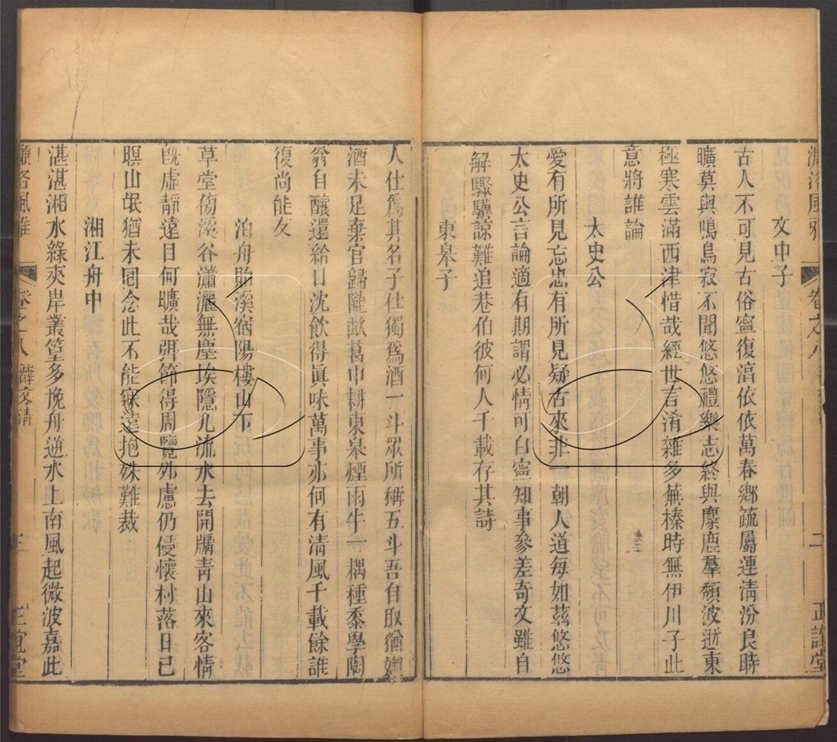 濂洛風雅 卷之八 二 正誼堂
文中子
古人不可見古俗寧復湻依依萬春鄉疏屬運淸汾良時
曠莫與鳴鳥寂不聞悠悠禮樂志終與麋鹿羣頹波逝東
極寒雲滿西津惜哉經世言淆雜多蕪榛時無伊川子此
意將誰論
太史公
愛有所見忘忠有所見疑古來非一朝人道每如茲悠悠
太史公言論適有期謂必情可白寧知事參差奇文雖自
解驥驥諒難追巷伯彼何人千載存其詩
東皋子
人仕爲其名子仕獨爲酒一斗眾所稱五斗吾自取猶嫌
酒未足棄官歸隴畝葛巾耕東皋煙雨牛一耦種黍學陶
翁自釀還給口沈飲得眞味萬事亦何有淸風千載餘誰
復尚能友
泊舟貽溪宿陽樓山下
草堂傍溪谷瀟灑無塵埃隱几流水去開牖靑山來客情
旣虛靜遠目何曠哉弭節得周覽外慮仍侵懷村落日已
暝山氓猶未囘念此不能寐達抱殊難裁
湘江舟中
湛湛湘水綠夾岸叢篁多挽舟遡水上南風起微波嘉此
濂洛風雅 卷之八 薛文淸 三 正誼堂